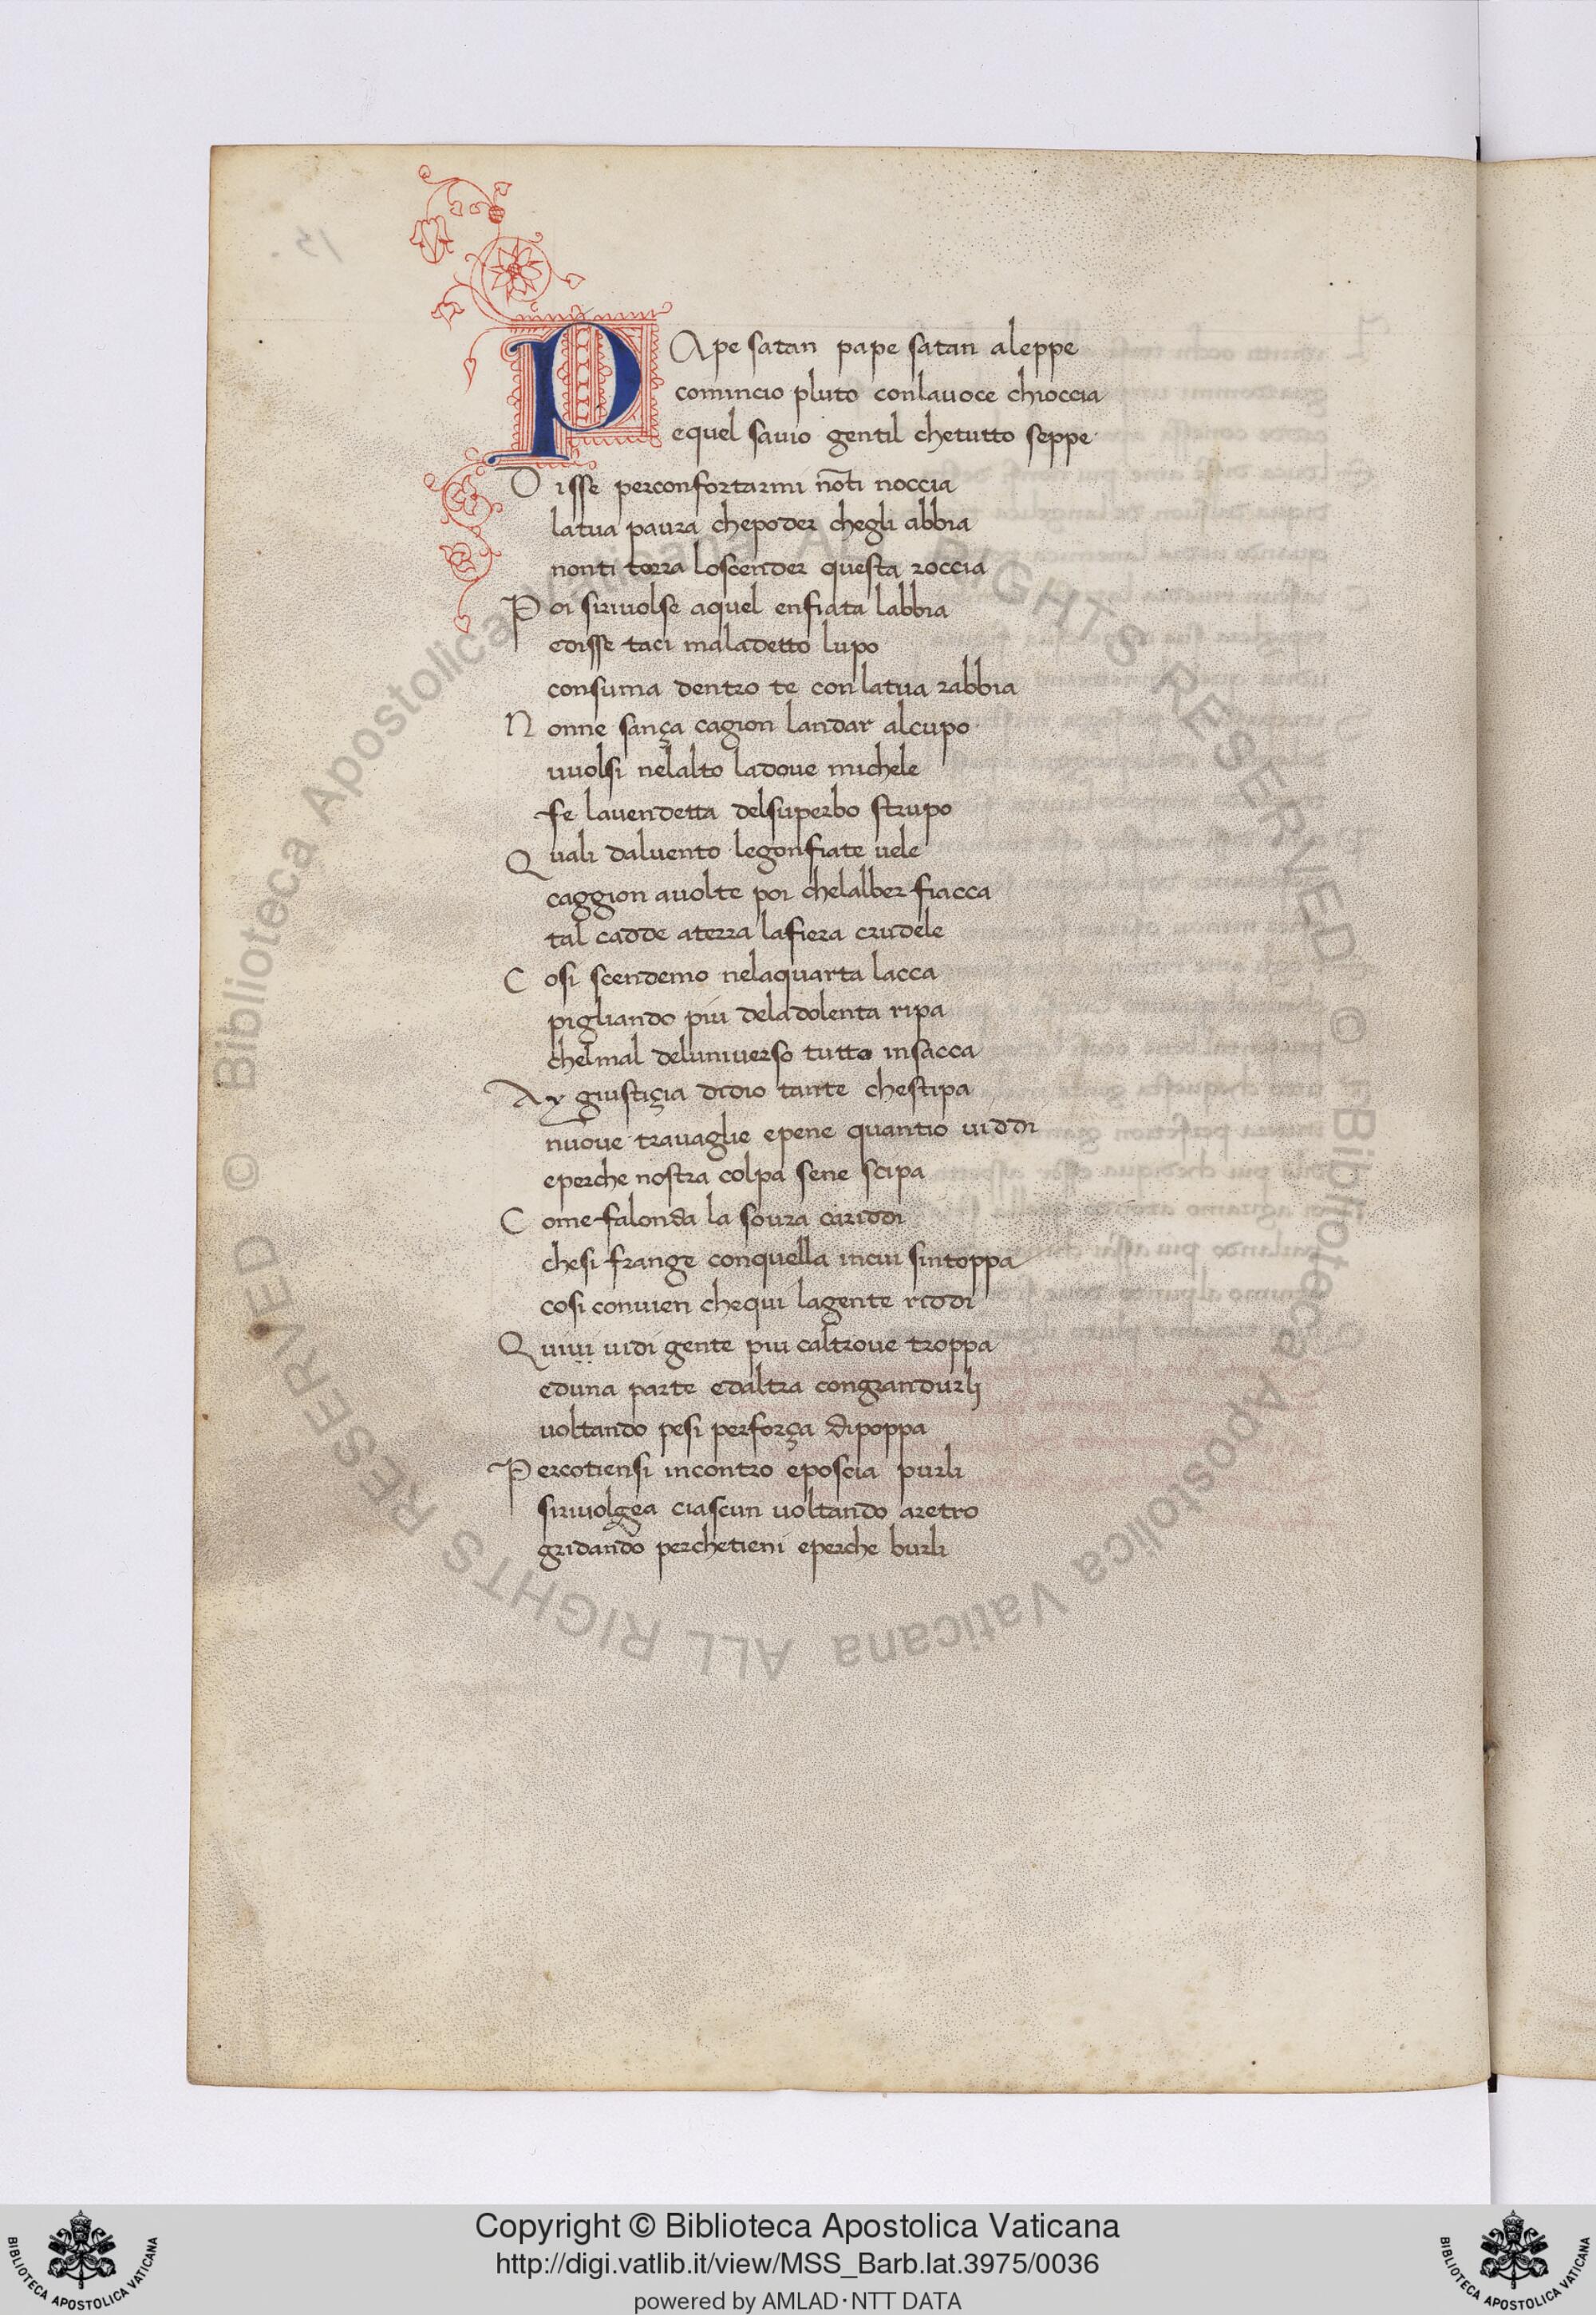 PApe satan pape satan aleppe
comincio pluto conlauoce chioccia
equel sauio gentil chetutto seppe
Disse perconfortarmi nōti noccia
latua paura chepoder chegli abbia
nonti torra loscender questa roccia
Poi siriuolse aquel enfiata labbia
edisse taci maladetto lupo
consuma dentro te con latua rabbia
Nonne sança cagion landar alcupo
uuolsi nelalto ladoue michele
fe lauendetta delsuperbo strupo
Quali daluento legonfiate uele
caggion auolte poi chelalber fiacca
tal cadde aterra lafiera crudele
Cosi scendemo nelaquarta lacca
pigliando piu deladolenta ripa
chelmal deluniuerso tutto insacca
Ay giustiçia didio tante chestipa
nuoue trauaglie epene quantio uiddi
eperche nostra colpa sene scipa
Come falonda la soura cariddi
chesi frange conquella incui sintoppa
cosi conuien chequi lagente riddi
Quiui uidi gente piu caltroue troppa
eduna parte edaltra congrandurli
uoltando pesi perforça dipoppa
Percotiensi incontro eposcia purli
siriuolgea ciascun uoltando aretro
gridando perchetieni eperche burli
© Biblioteca Apostolica Vaticana ALL RIGHTS RESERVED © Biblioteca Apostolica Vaticana ALL RIGHTS RESERVED
Copyright © Biblioteca Apostolica Vaticana
http://digi.vatlib.it/view/MSS_Barb.lat.3975/0036
powered by AMLAD·NTT DATA
BIBLIOTECA APOSTOLICA VATICANA
BIBLIOTECA APOSTOLICA VATICANA